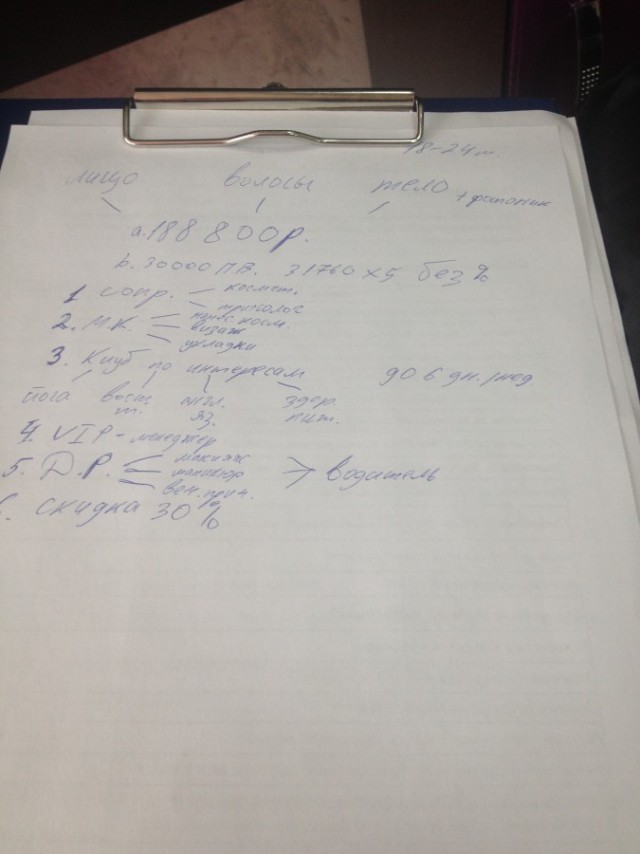 18-24 м.
лицо волосы тело
a. 188 800р.
b. 30000 П.В. 31760 х 5 без %
1 сопр. космет.
трихолог
2. М.К. косм.
визаж
укладки
3. Клуб по интересам до 6 дн./нед
йога вост. англ. здор.
т. яз. пит.
4. VIP-менеджер
5. Д.Р. макияж
маникюр водитель
веч. прич.
6. скидка 30%